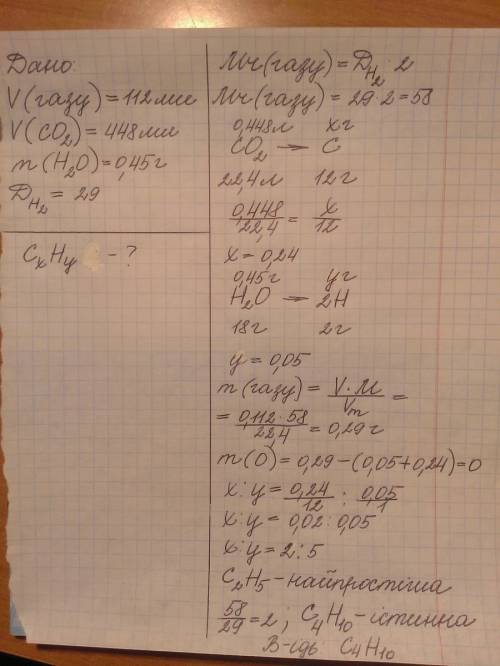 Дано:
V(газу)=112мл
V(CO₂)=448мл
m(H₂O)=0,45г
D_H₂ = 29
CₓHᵧ - ?
Mr(газу)=D_H₂·2
Mr(газу)=29·2=58
0,448л xг
CO₂ → C
22,4л 12г
0,448/22,4 = x/12
x=0,24
0,45г yг
H₂O → 2H
18г 2г
y=0,05
m(газу) = V·M/Vm =
= 0,112·58/22,4 = 0,29г
m(O)=0,29-(0,05+0,24)=0
x:y= 0,24/12 : 0,05/1
x:y=0,02:0,05
x:y=2:5
C₂H₅-найпростіша
58/29=2; C₄H₁₀-істинна
В-ідь C₄H₁₀